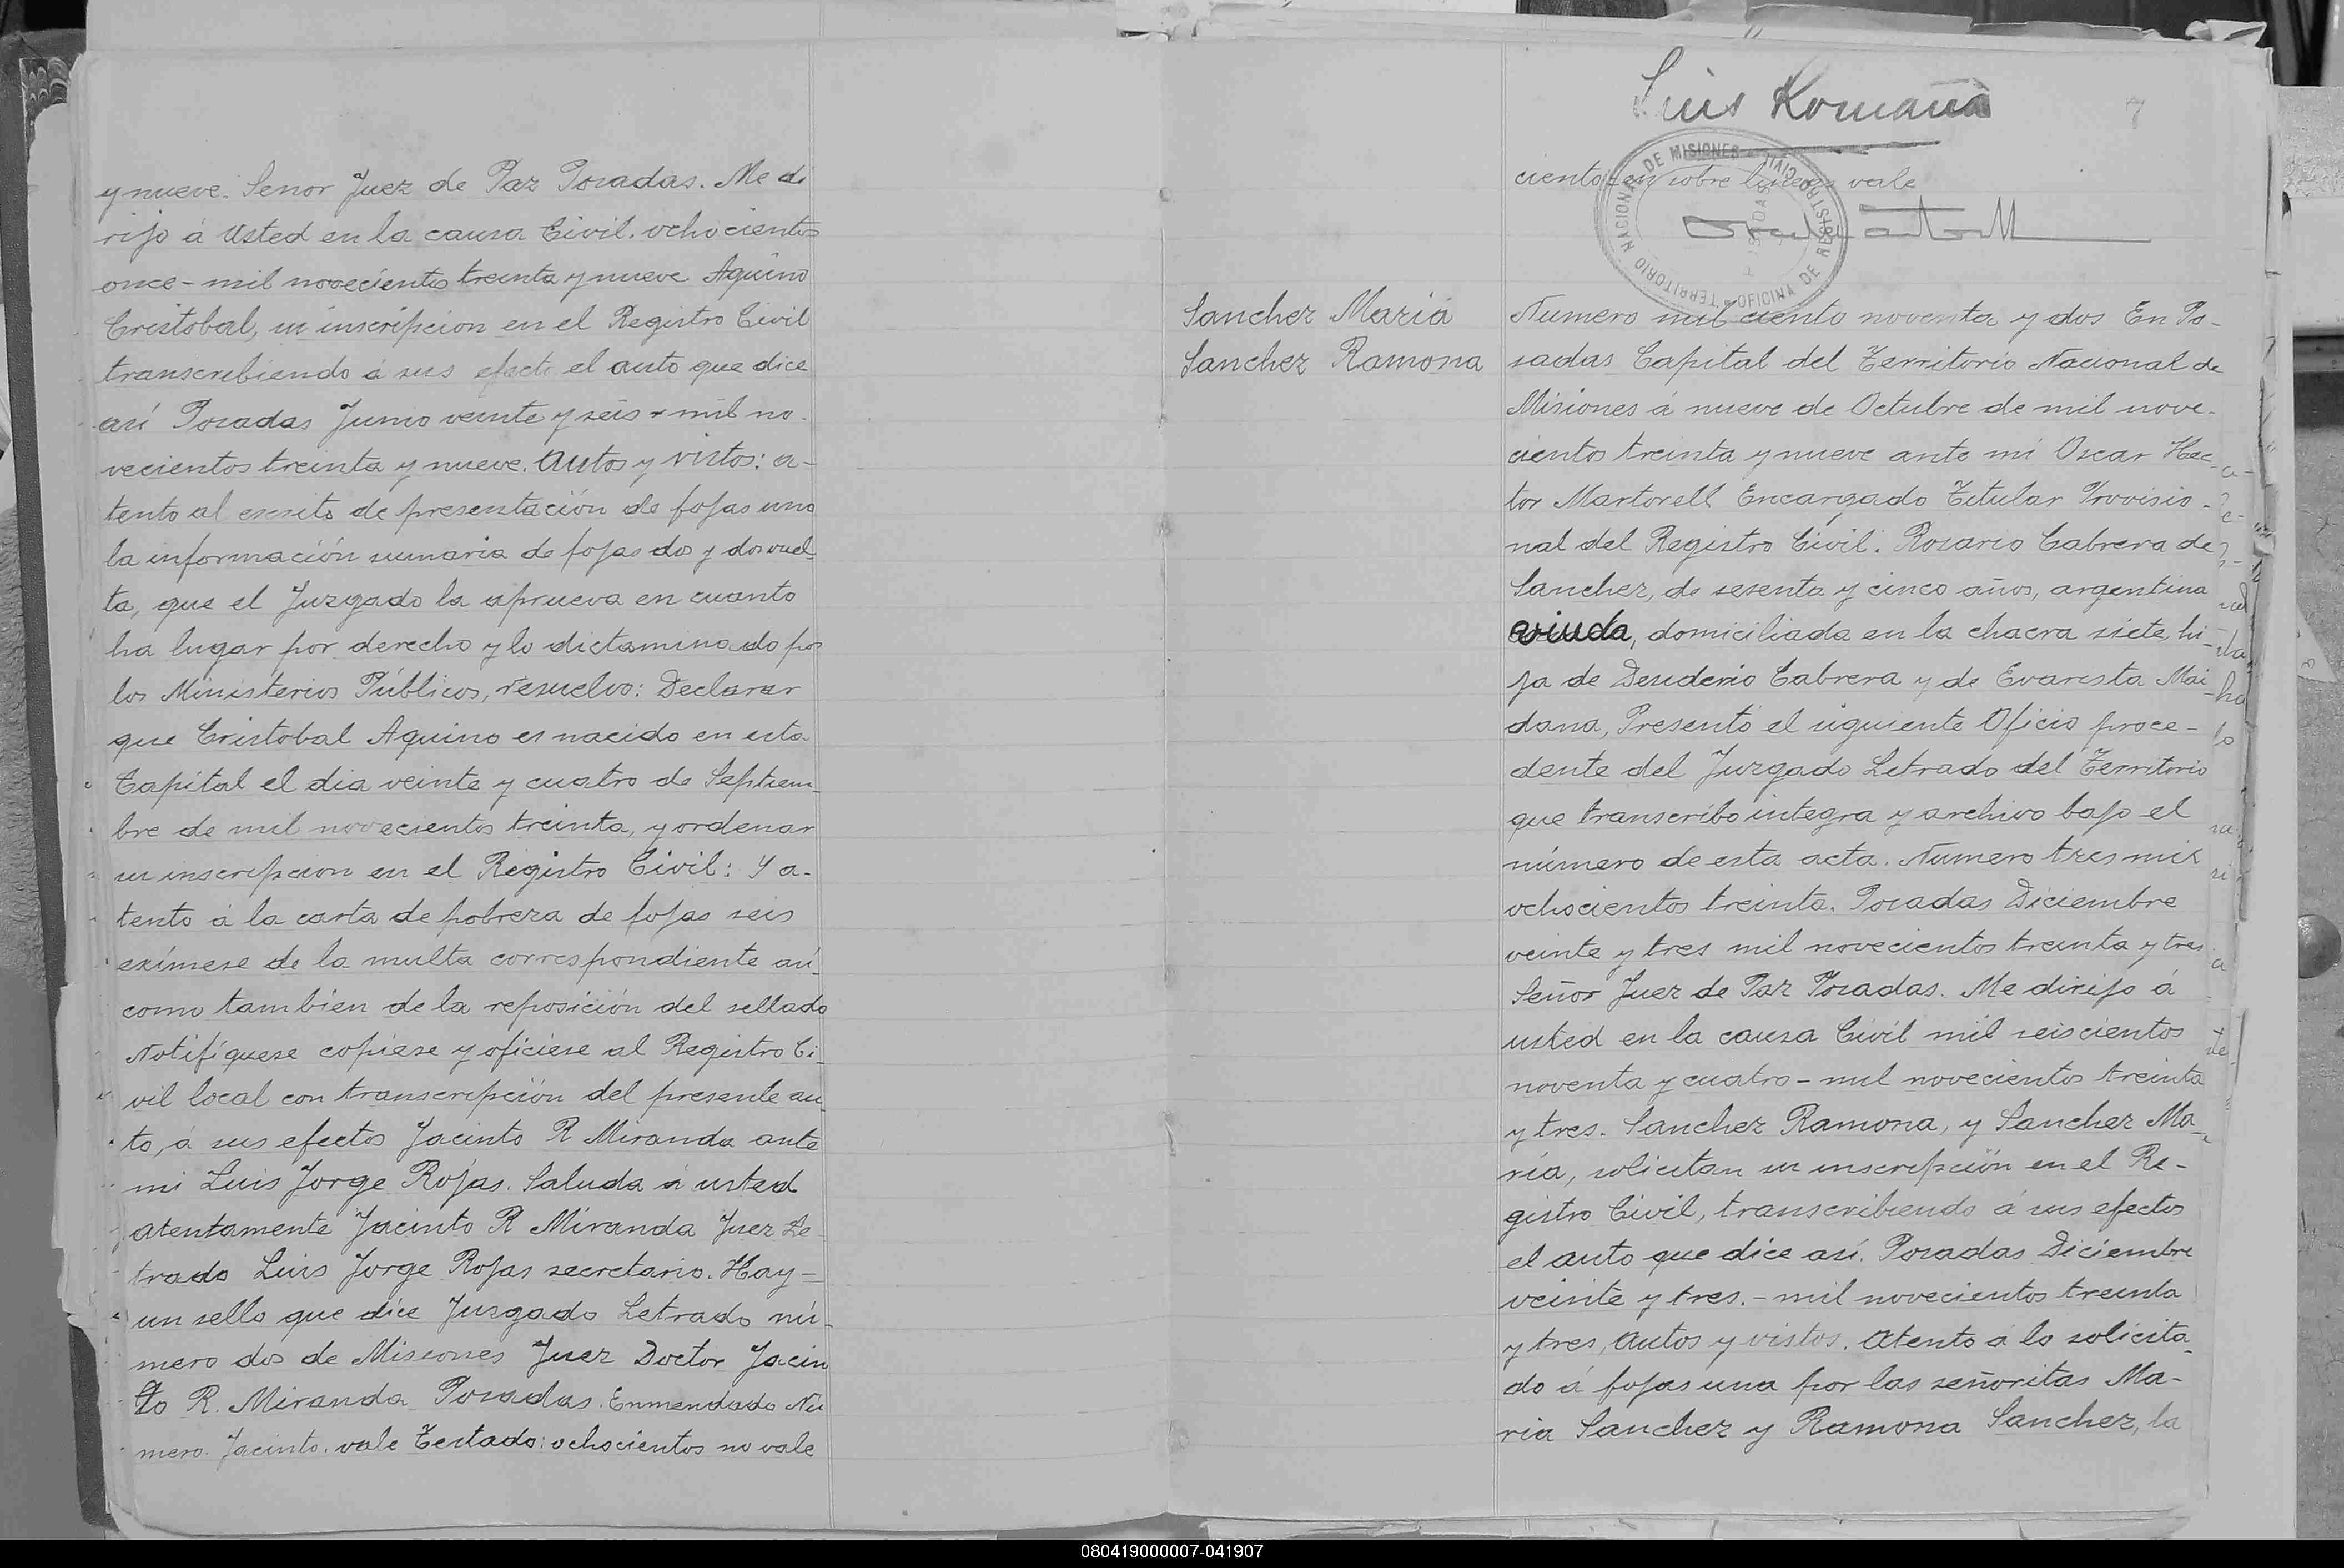 y nueve. Senor Juez de Paz Posadas. Me di
rijo á Usted en la causa Civil. ochocientos
once - mil novecientos treinta y nueve Aquino
Cristobal, su inscripcion en el Registro Civil
transcribiendo á sus efecto el auto que dice
así Posadas Junio veinte y seis - mil no-
vecientos treinta y nueve. Autos y vistos: a-
tento al escrito de presentación de fojas uno
la información sumaria de fojas dos y dos vuel-
ta, que el Juzgado la aprueva en cuanto
ha lugar por derecho y lo dictaminado por
los Ministerios Públicos, resuelvo: Declarar
que Cristobal Aquino es nacido en esta
Capital el dia veinte y cuatro de Septiem-
bre de mil novecientos treinta, y ordenar
su inscripcion en el Registro Civil: Y a-
tento á la carta de pobreza de fojas seis
exímese de la multa correspondiente así
como tambien de la reposición del sellado
Notifíquese copiese y oficiese al Registro Ci-
vil local con transcripción del presente au-
to, á sus efectos Jacinto R Miranda ante
mi Luis Jorge Rojas. Saluda á usted
atentamente Jacinto R Miranda Juez Le-
trado Luis Jorge Rojas secretario. Hay -
un sello que dice Juzgado Letrado nú-
mero dos de Misiones Juez Doctor Jacin
to R. Miranda Posadas. Enmendado Nu
mero. Jacinto. vale Testado: ochocientos no vale
Luis Romaña
ciento: en sobre lineas vale
TERRITORIO NACIONAL DE MISIONES
OFICINA DE REGISTRO CIVIL
POSADAS
Sanchez Maria
Sanchez Ramona
Numero mil ciento noventa y dos En Po-
sadas Capital del Territorio Nacional de
Misiones á nueve de Octubre de mil nove-
cientos treinta y nueve ante mi Oscar Hec-
tor Martorell Encargado Titular Provisio-
nal del Registro Civil. Rosario Cabrera de
Sanchez, de sesenta y cinco años, argentina
viuda, domiciliada en la chacra siete, hi-
ja de Desiderio Cabrera y de Evarista Mai
dana, Presentó el siguiente Oficio proce-
dente del Juzgado Letrado del Territorio
que transcribo integra y archivo bajo el
número de esta acta. Numero tres mil
ochocientos treinta. Posadas Diciembre
veinte y tres mil novecientos treinta y tres.
Señor Juez de Paz Posadas. Me dirijo á
usted en la causa Civil mil seiscientos
noventa y cuatro - mil novecientos treinta
y tres. Sanchez Ramona, y Sanchez Ma-
ría, solicitan su inscripción en el Re-
gistro Civil, transcribiendo á sus efectos
el auto que dice así. Posadas Diciembre
veinte y tres. - mil novecientos treinta
y tres, Autos y vistos. Atento á lo solicita-
do á fojas una por las señoritas Ma-
ria Sanchez y Ramona Sanchez, la
080419000007-041907